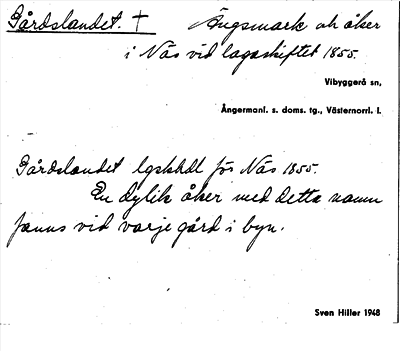 Gårdslandet. † Ängsmark och åker
i Näs vid lagaskiftet 1855.
Vibyggerå sn,
Ångermanl. s. doms. tg., Västernorrl. l.
Gårdslandet lgskhdl för Näs 1855.
En dylik åker med detta namn
fanns vid varje gård i byn.
Sven Hiller 1948